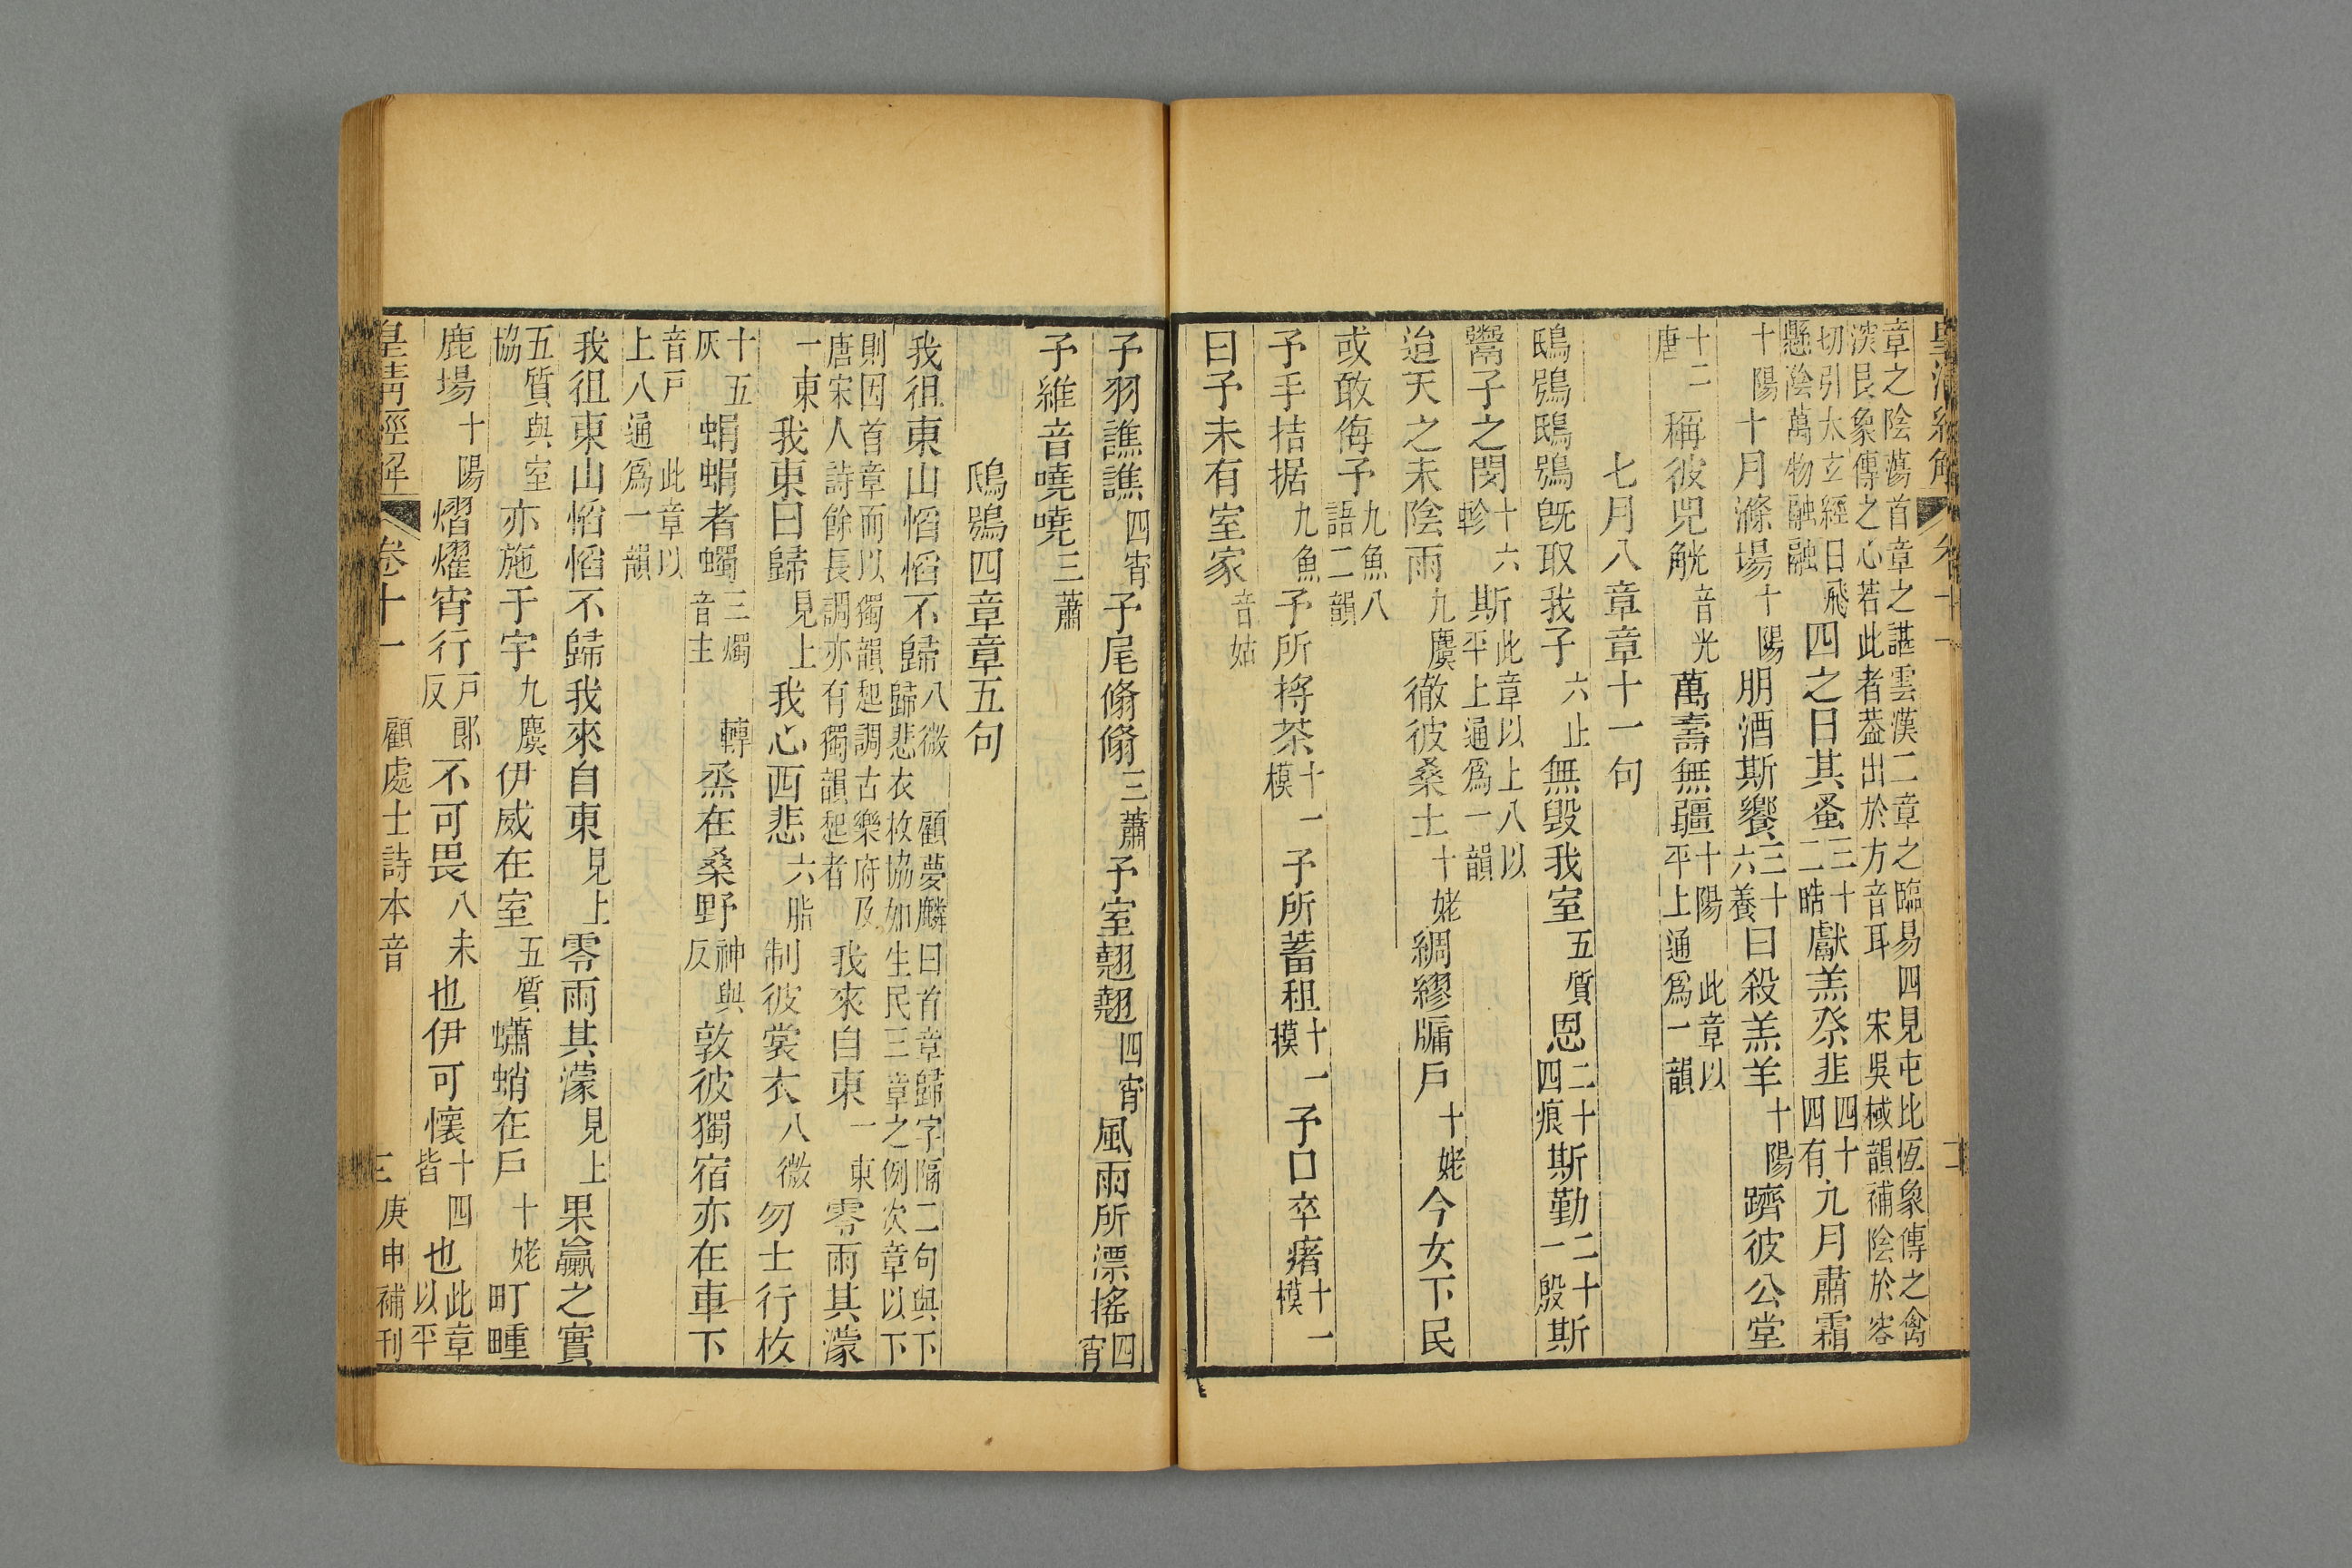 皇清經解
卷十一
二
章之陰蕩首章之諶雲漢二章之臨易四見屯比恆象傳之禽
深艮象傳之心若此者葢出於方音耳 宋吳棫韻補陰於容
切引太玄經日飛
懸陰萬物融融
四之日其蚤三十二晧獻羔祭韭四十四有九月肅霜
十陽十月滌場十陽朋酒斯饗三十六養曰殺羔羊十陽躋彼公堂
十二唐稱彼兕觥音光萬壽無疆十陽 此章以平上通爲一韻
七月八章章十一句
鴟鴞鴟鴞旣取我子六止無毀我室五質恩二十四痕斯勤二十一殷斯
鬻子之閔十六軫斯此章以上八以平上通爲一韻
迨天之未陰雨九麌徹彼桑土十姥綢繆牖戶十姥今女下民
或敢侮予九魚八語二韻
予手拮据九魚予所捋荼十一模予所蓄租十一模予口卒瘏十一模
曰予未有室家音姑
予羽譙譙四宵予尾翛翛三蕭予室翹翹四宵風雨所漂搖四宵
予維音嘵嘵三蕭
鴟鴞四章章五句
我徂東山慆慆不歸八微 顧夢麟曰首章歸字隔二句與下
歸悲衣枚協如生民三章之例次章以下
則因首章而以獨韻起調古樂府及
唐宋人詩餘長調亦有獨韻起者
我來自東一東零雨其濛
一東我東曰歸見上我心西悲六脂制彼裳衣八微勿士行枚
十五灰蜎蜎者蠋三燭音主 轉烝在桑野神與反敦彼獨宿亦在車下
音戸 此章以上八通爲一韻
我徂東山慆慆不歸我來自東見上零雨其濛見上果臝之實
五質與室協亦施于宇九麌伊威在室五質蠨蛸在戶十姥町畽
鹿場十陽熠燿宵行戸郎反不可畏八未也伊可懷十四皆也此章以平
皇清經解
卷十一
顧處士詩本音
三
庚申補刊